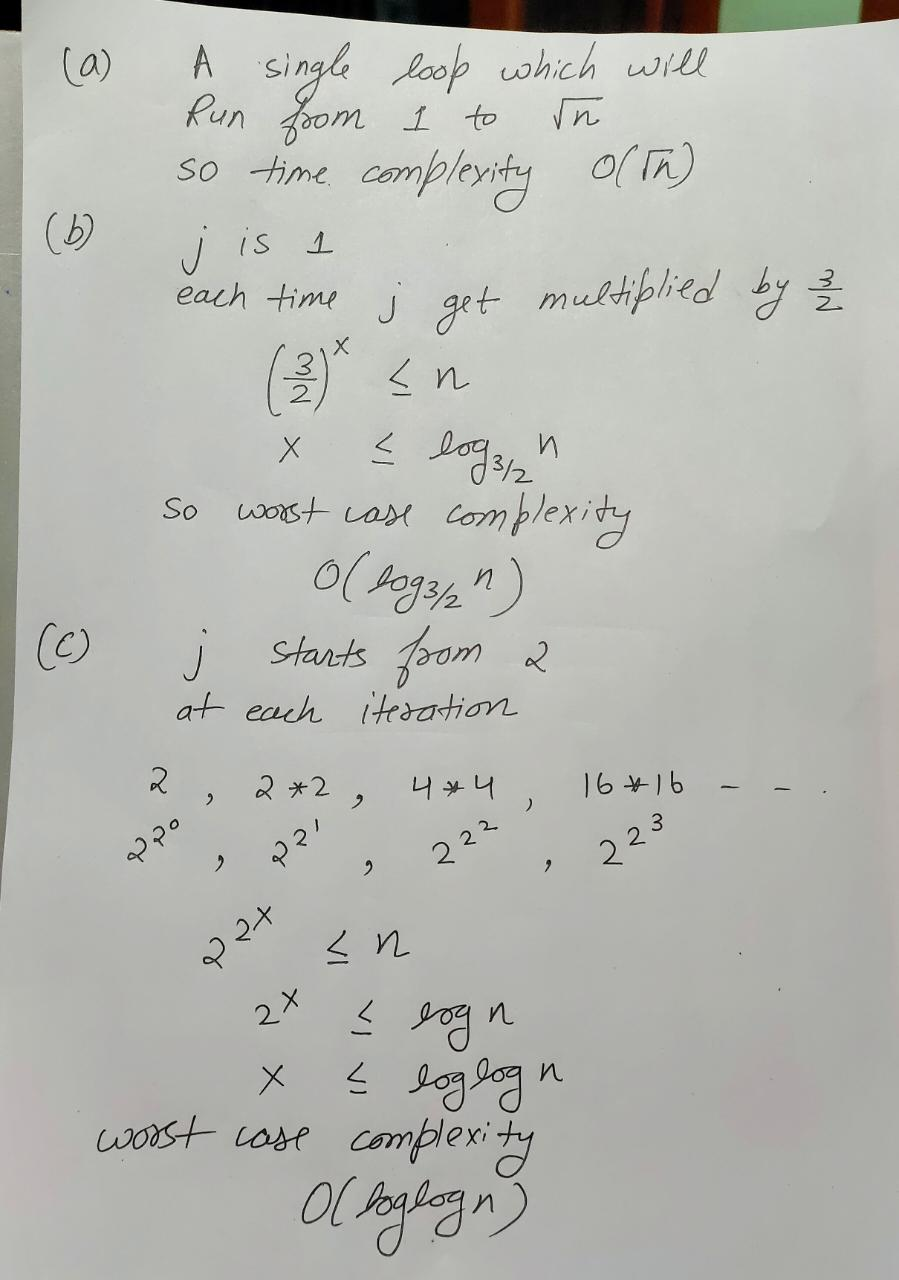 (a) A single loop which will
Run from 1 to √n
so time complexity O(√n)
(b) j is 1
each time j get multiplied by 3/2
(3/2)^x ≤ n
x ≤ log_{3/2} n
so worst case complexity
O(log_{3/2} n)
(c) j starts from 2
at each iteration
2 , 2*2 , 4*4 , 16*16 - - .
2^{2^0} , 2^{2^1} , 2^{2^2} , 2^{2^3}
2^{2^x} ≤ n
2^x ≤ log n
x ≤ loglog n
worst case complexity
O(loglogn)